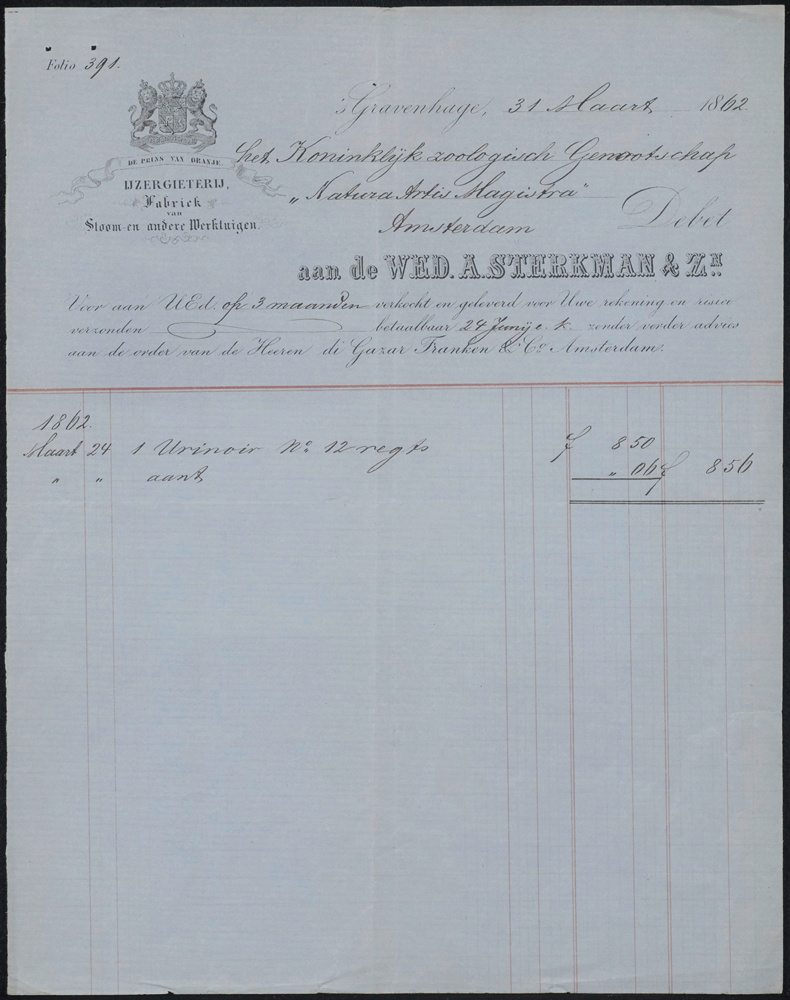 Folio 391.
's Gravenhage, 31 Maart 1862
het Koninklijk zoologisch Genootschap
„Natura Artis Magistra"
Amsterdam Debet
DE PRINS VAN ORANJE.
IJZERGIETERIJ,
Fabriek
van
Stoom- en andere Werktuigen.
aan de WED. A. STERKMAN & ZN
Voor aan UEd. op 3 maanden verkocht en geleverd voor Uwe rekening en risico
verzonden betaalbaar 24 Junij e. k. zonder verder advies
aan de order van de Heeren di Gazar Franken & Co. Amsterdam.
1862.
Maart 24 1 Urinoir No. 12 regts f 8 50
" " aant " 06 f 8 56